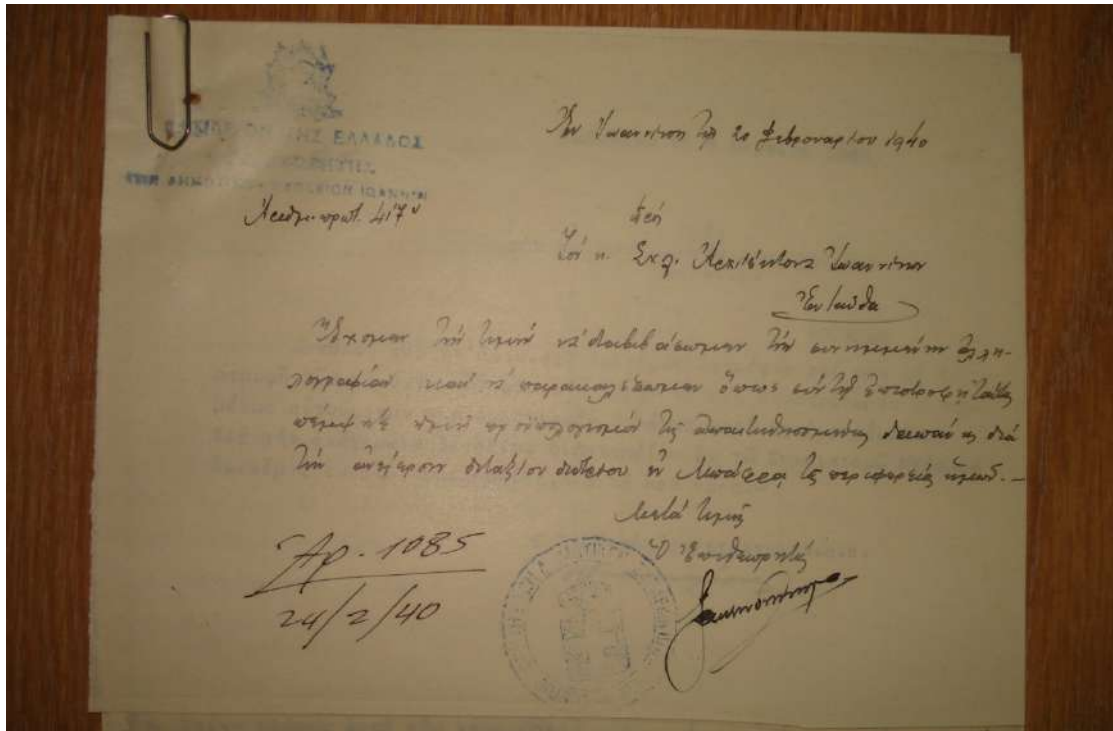 ΒΑΣΙΛΕΙΟΝ ΤΗΣ ΕΛΛΑΔΟΣ
ΤΩΝ ΔΗΜΟΤΙΚΩΝ ΣΧΟΛΕΙΩΝ ΙΩΑΝΝΙΝ
Ἐν Ἰωαννίνοις τῇ 20 Φεβρουαρίου 1940
Ἀριθμ. πρωτ. 417
Πρὸς
Τὸν κ. Σχολ. Ἀρχιτέκτονα Ἰωαννίνων
Ἐνταῦθα
Ἔχομεν τὴν τιμὴν νὰ διαβιβάσωμεν τὴν συνημμένην ἀλλη-
λογραφίαν καὶ νὰ παρακαλέσωμεν ὅπως σὺν τῇ ἐπιστροφῇ ταύτης
πέμψητε ἡμῖν προϋπολογισμὸν τῆς ἀπαιτηθησομένης δαπάνης διὰ
τὴν ἀνέγερσιν διταξίου διδ/ρίου ἐν τῆς περιφερείας ἡμῶν.-
Μετὰ τιμῆς
Ὁ Ἐπιθεωρητὴς
Ἀρ. 1085
24/2/40